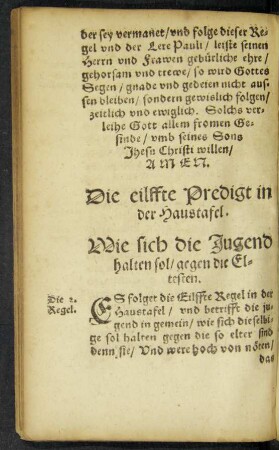 der sey vermanet/vnd folge dieser Re-
gel vnd der Lere Pauli/ leiste seinen
Herrn vnd Frawen gebürliche ehre/
gehorsam vnd trewe/ so wird Gottes
Segen/ gnade vnd gedeien nicht aus-
sen bleiben/ sondern gewislich folgen/
zeitlich vnd ewiglich. Solchs ver-
leihe Gott allem fromen Ge-
sinde/ vmb seines Sons
Jhesu Christi willen/
A M E N.
Die eilffte Predigt in
der Haustafel.
Wie sich die Jugend
halten sol/ gegen die El-
testen.
Die 2.
Regel.
ES folget die Eilffte Regel in der
Haustafel/ vnd betrifft die ju-
gend in gemein/ wie sich dieselbi-
ge sol halten gegen die so elter sind
denn sie/ Vnd were hoch von nöten/
das